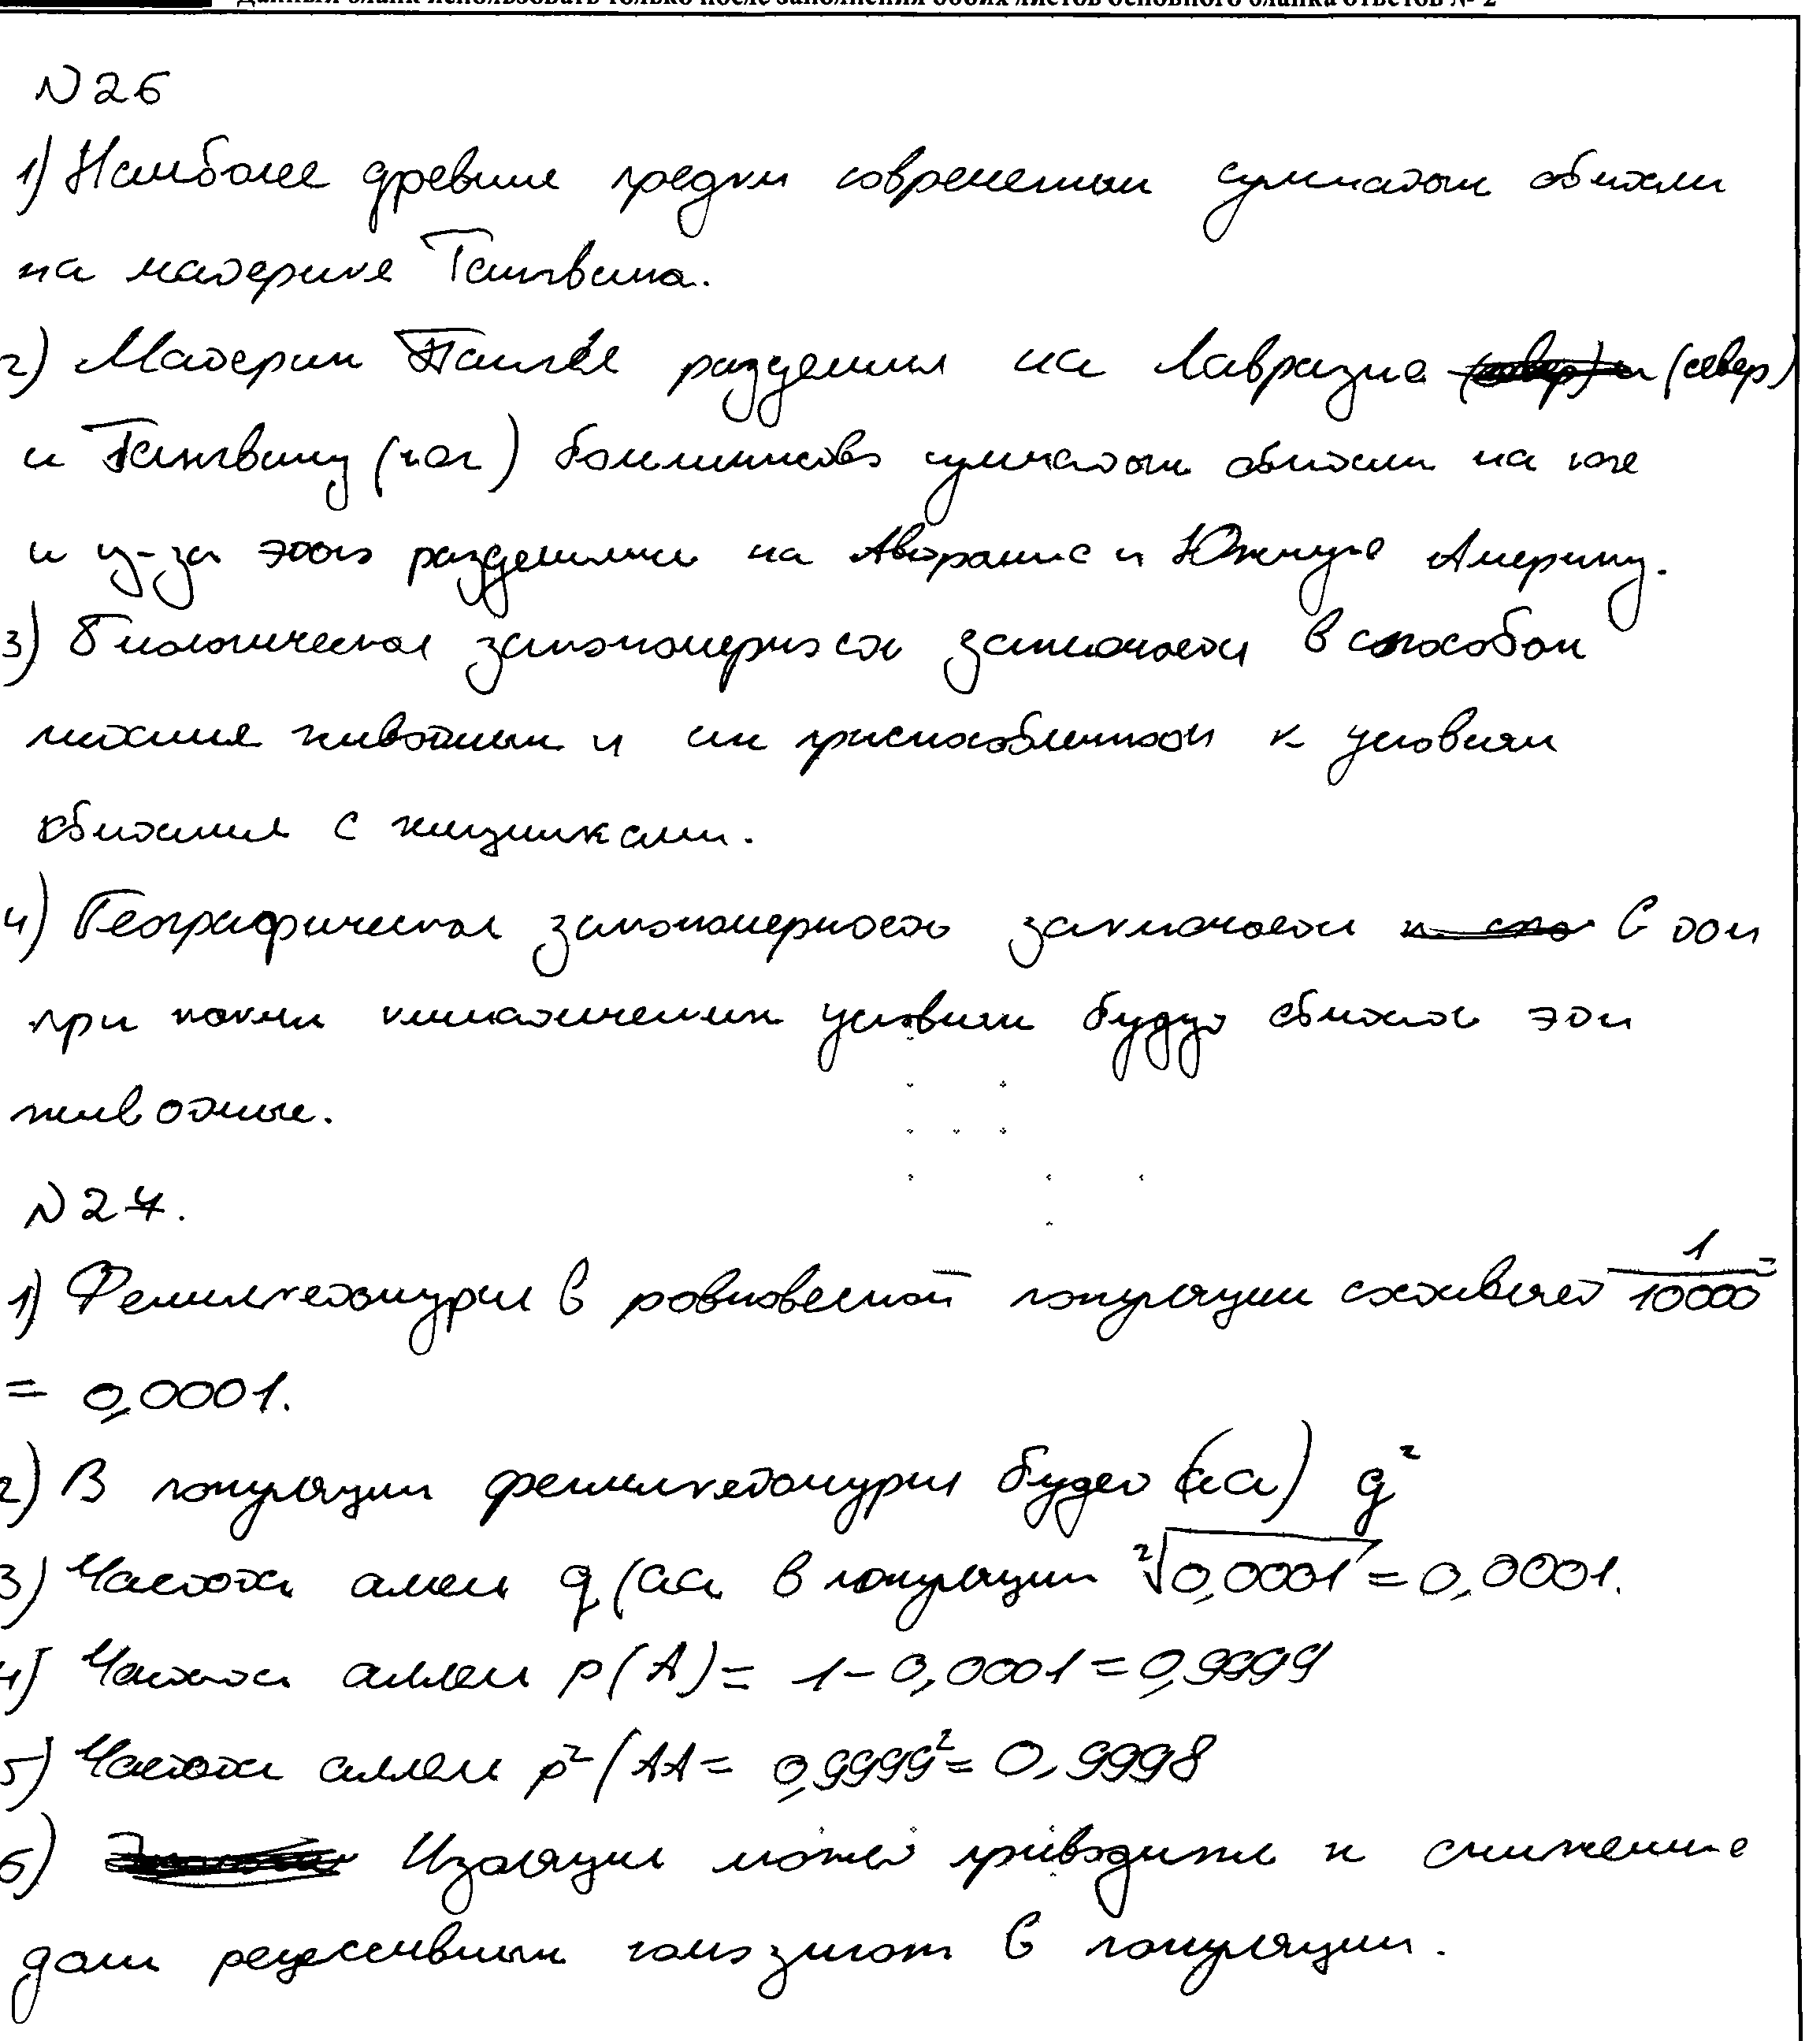 Данный бланк использовать только после заполнения обоих листов основного бланка ответов № 2
N26
1) Наиболее древние предки современных сумчатых обитали
на материке Гангвана.
2) Материк разделился на Лавразию (север)
и Гангвану (юг) большинство сумчатых обитали на юге
и из-за этого разделились на Австралию и Южную Америку.
3) Биологическая закономерность заключается в способах
питания животных и их приспособленности к условиям
обитания с хищниками.
4) Географическая закономерность заключается в том
при каких климатических условиях будут обитать эти
животные.
N27.
1) Фенилкетонурия в равновесной популяции составляет 1/10000 =
= 0,0001.
2) В популяции фенилкетонурия будет (aa) q²
3) Частота аллели q (aa в популяции ²√0,0001 = 0,0001.
4) Частота аллели p(A) = 1 - 0,0001 = 0,9999
5) Частота аллели p² (AA = 0,9999² = 0,9998
6) Изоляция может приводить к снижению
доли рецессивных гомозигот в популяции.